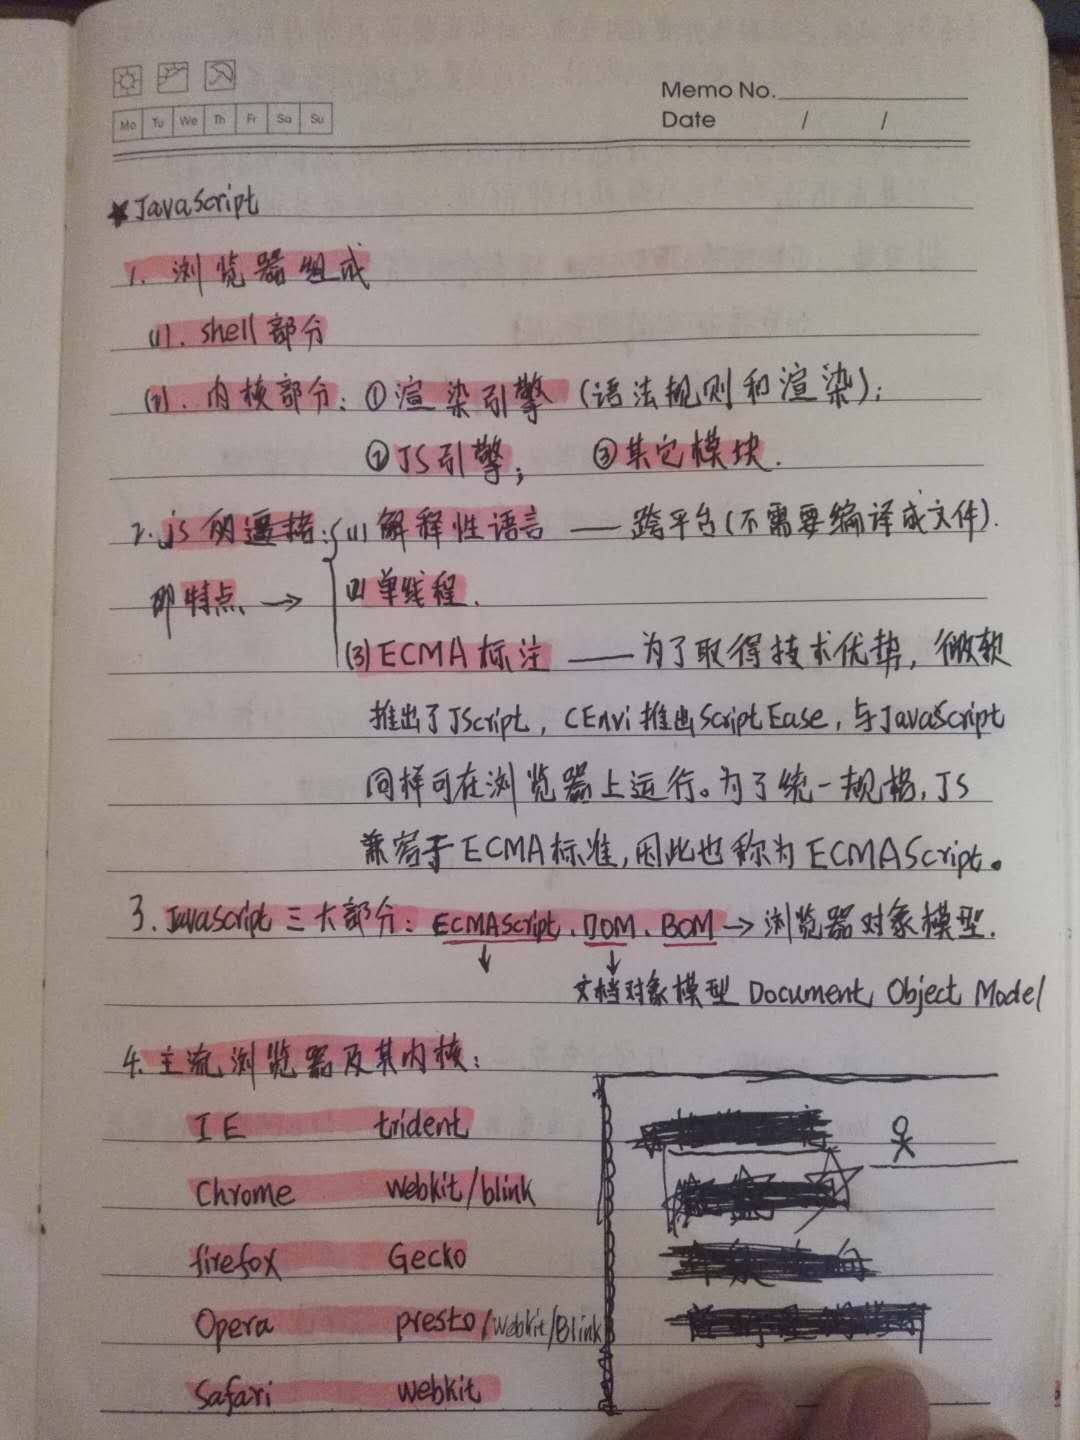 Memo No.
Mo Tu We Th Fr Sa Su
Date / /
★JavaScript
1. 浏览器组成
(1). shell部分
(2). 内核部分: ①渲染引擎 (语法规则和渲染);
②JS引擎; ③其它模块.
2. js的逼格: (1) 解释性语言 —— 跨平台(不需要编译成文件).
即特点 → (2) 单线程.
(3) ECMA标注 —— 为了取得技术优势, 微软
推出了JScript, CEnvi推出ScriptEase, 与JavaScript
同样可在浏览器上运行。为了统一规格, JS
兼容于ECMA标准, 因此也称为ECMAScript。
3. JavaScript三大部分: ECMAScript、DOM、BOM → 浏览器对象模型.
↓ ↓
文档对象模型 Document Object Model
4. 主流浏览器及其内核:
IE trident
Chrome webkit/blink
firefox Gecko
Opera presto/webkit/Blink
Safari webkit